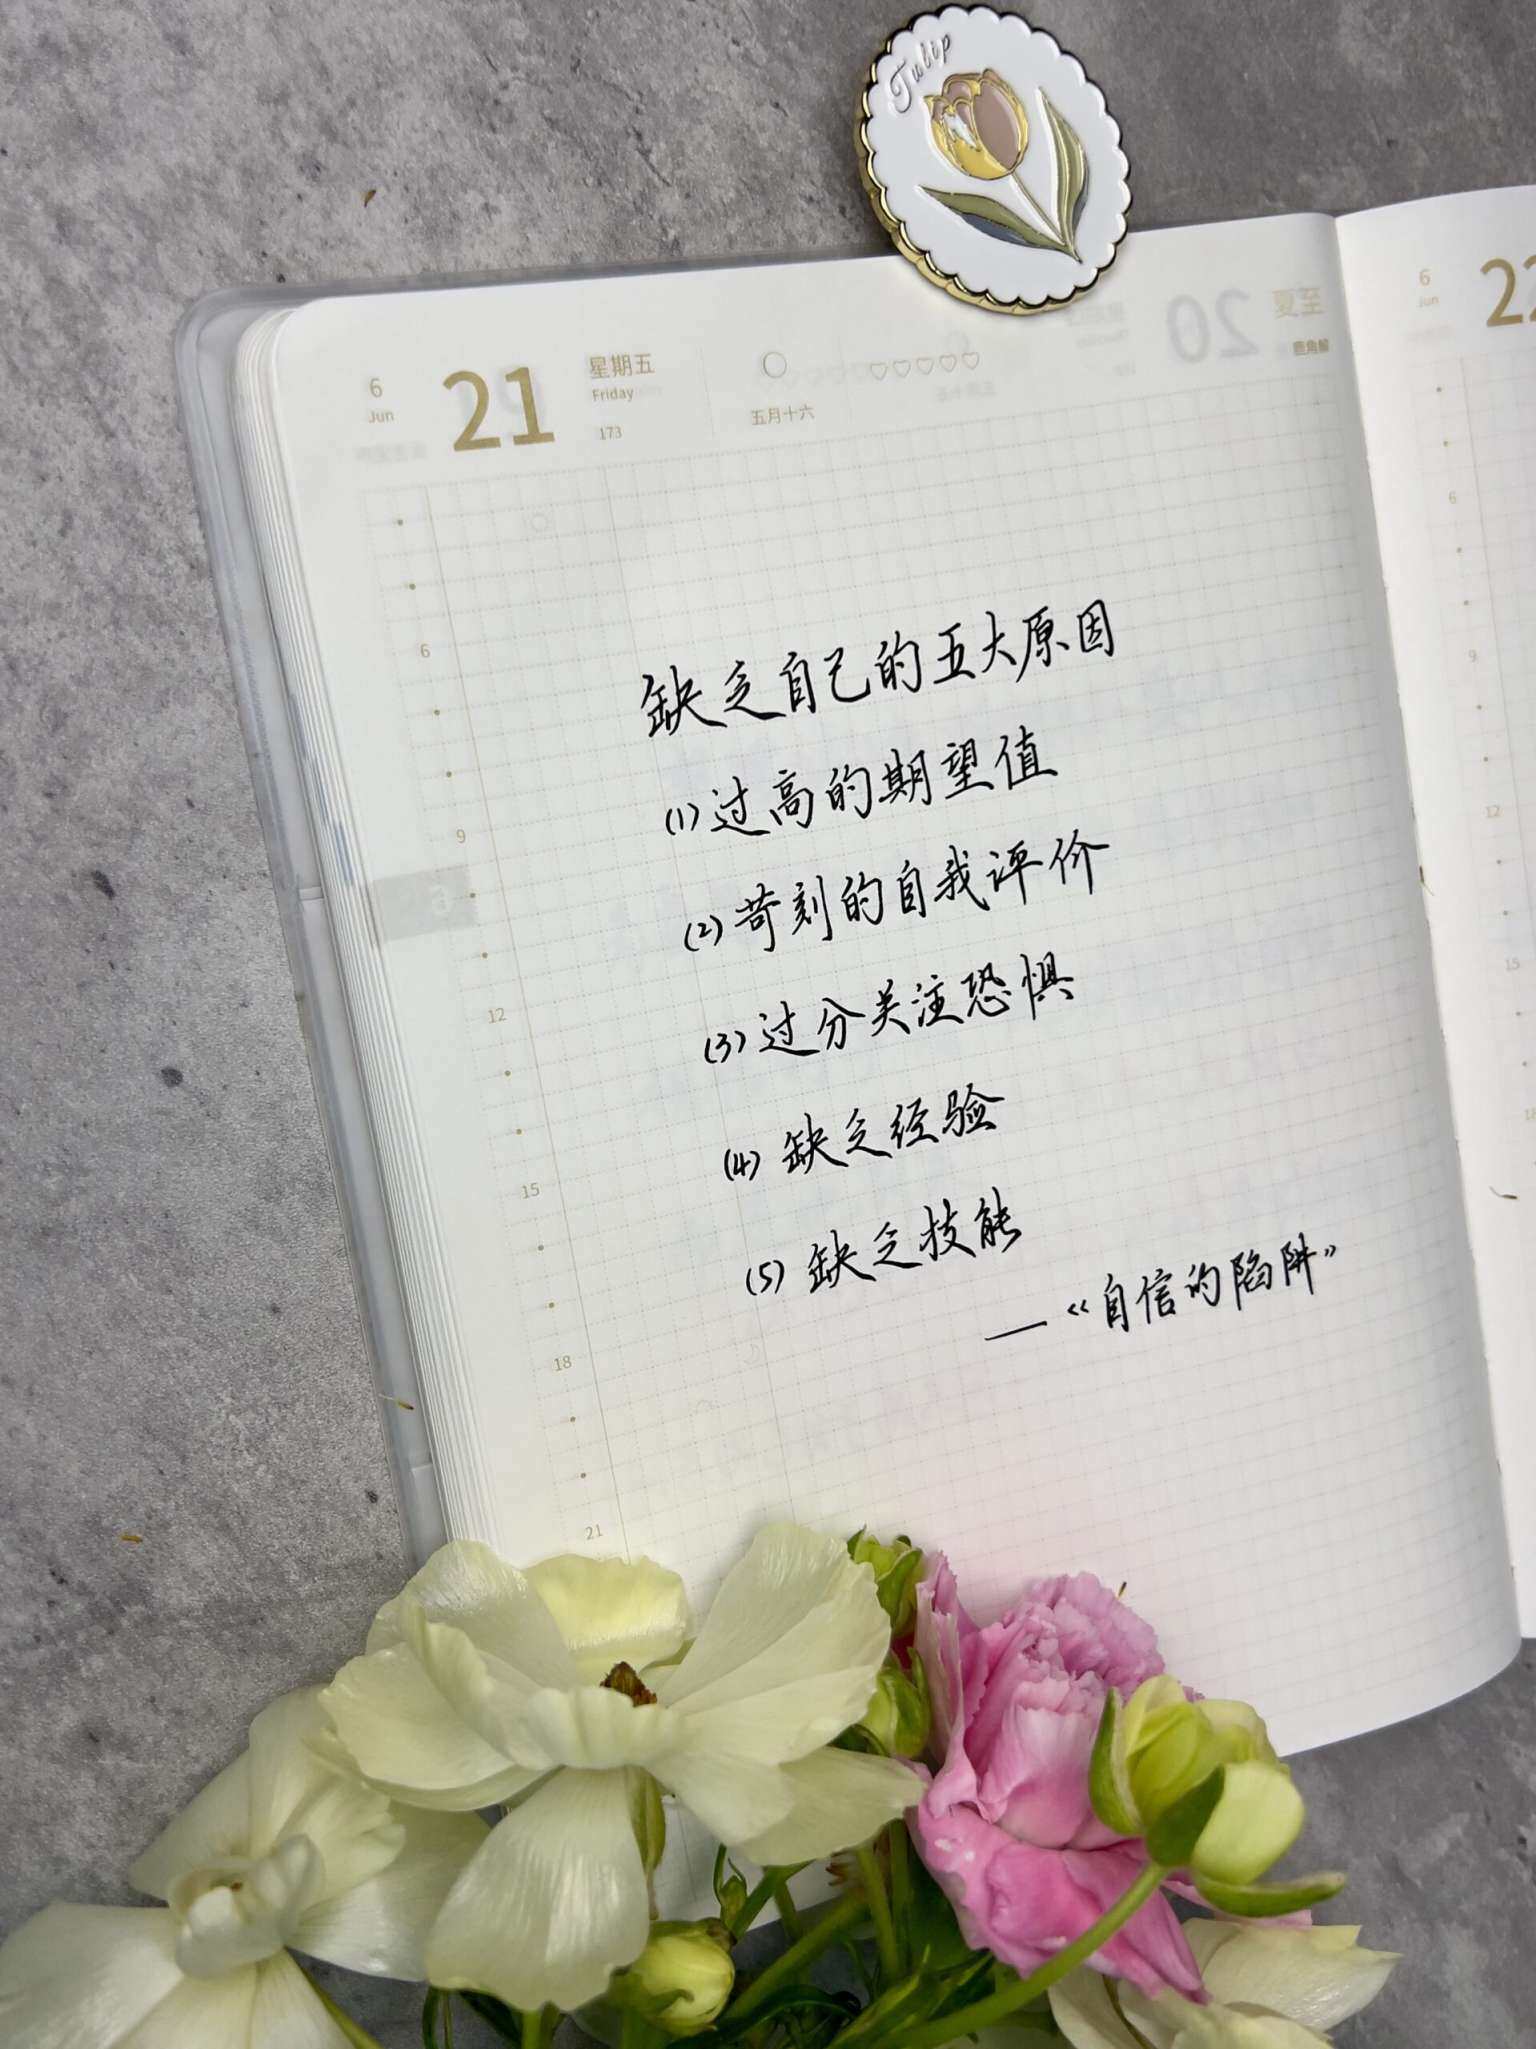 Tulip
6
Jun
21
星期五
Friday
173
五月十六
夏至
20
6
Jun
22
缺乏自己的五大原因
(1)过高的期望值
(2)苛刻的自我评价
(3)过分关注恐惧
(4)缺乏经验
(5)缺乏技能
—《自信的陷阱》
6
9
12
15
18
21
6
9
12
15